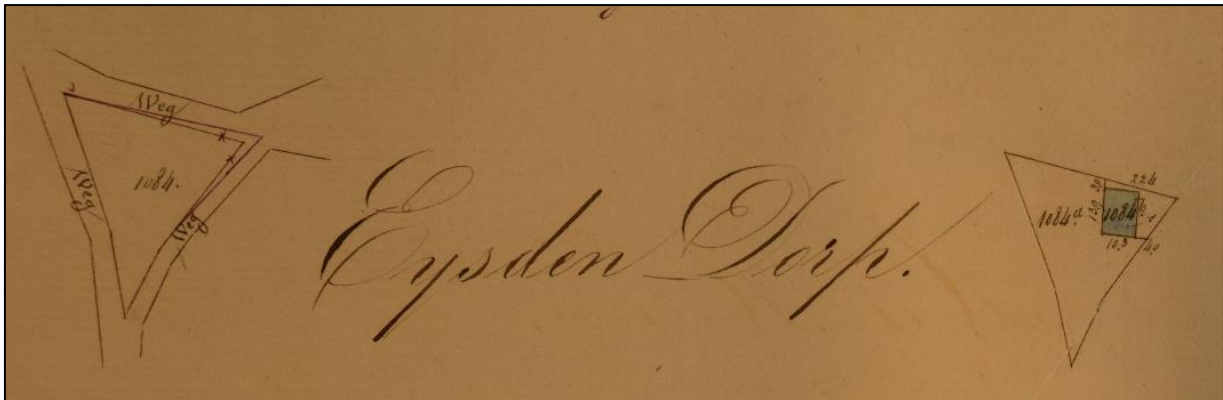 Weg
Weg
1084.
Weg
Eysden Dorp.
1084ª
1084
224
30
130
103
40